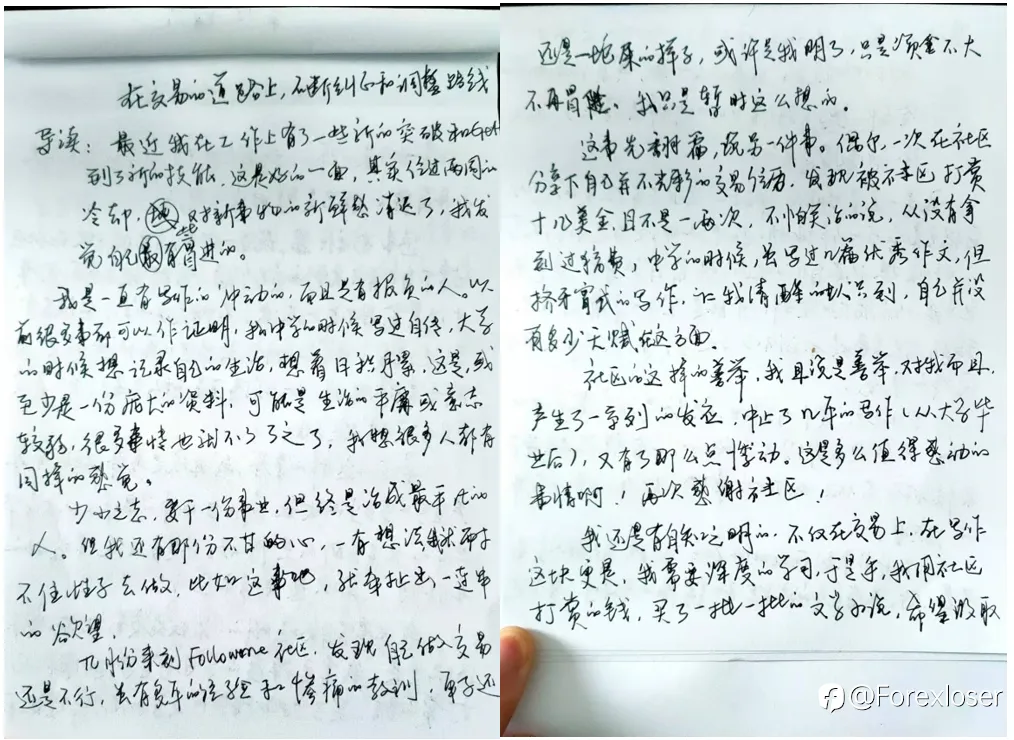 在交易的道路上,不断纠正和调整路线
导读:最近我在工作上有了一些新的突破和Get
到了新的技能,这是好的一面,其实经过两周的
冷却,对新事物的新鲜感消退了,我发
觉自己是有些冒进的。
我是一直有写作的冲动的,而且是有报负的人。以
前很多事都可以作证明,我中学的时候写过自传,大学
的时候想记录自己的生活,想着日积月累,这是,或
至少是一份庞大的资料,可能是生活的平庸或意志
较弱,很多事情也就不了了之了,我想很多人都有
同样的感觉。
少小之志,要干一份事业,但终是活成最平凡的
人。但我还有那份不甘的心,一有想法就耐
不住性子去做,比如这事吧,就牵扯出一连串
的欲望。
几月份来到Followme社区,发现自己做交易
还是不行,虽有多年的经验和惨痛的教训,单子还
还是一地的样子,或许是我明了,只是资金不大
不再冒险、我只是暂时这么想的。
这事先翻篇,说另一件事。偶尔,一次在社区
分享下自己并不光彩的交易经历,发现被社区打赏
十几美金,且不是一两次,不怕笑话的说,从没有拿
到过稿费,中学的时候,虽写过几篇优秀作文,但
挤牙膏式的写作,让我清醒的认识到,自己并没
有多少天赋在这方面。
社区的这样的善举,我且说是善举,对我而且,
产生了一系列的发应,中止了几年的写作(从大学毕
业后),又有了那么点悸动。这是多么值得感动的
事情啊!再次感谢社区!
我还是有自知之明的,不仅在交易上,在写作
这块更是,我需要深度的学习,于是乎,我用社区
打赏的钱,买了一批一批的文学小说,希望汲取
@Forexloser